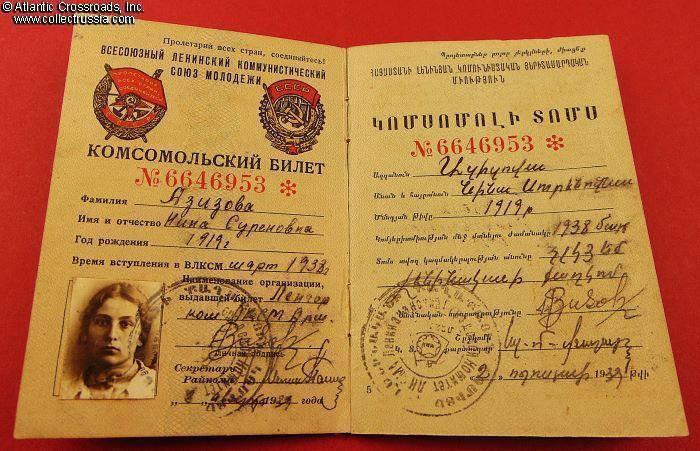 © Atlantic Crossroads, Inc.
www.collectrussia.com
Пролетарии всех стран, соединяйтесь!
ВСЕСОЮЗНЫЙ ЛЕНИНСКИЙ КОММУНИСТИЧЕСКИЙ
СОЮЗ МОЛОДЕЖИ
СССР
КОМСОМОЛЬСКИЙ БИЛЕТ
№ 6646953 *
Фамилия Азизова
Имя и отчество Нина Суреновна
Год рождения 1919 г
Время вступления в ВЛКСМ март 1938 г
Наименование организации,
выдавшей билет Ленгор
ком ЛКСМ Арм.
Личная подпись
Секретарь
Райкома
8 1939 года
Պրոլետարներ բոլոր յերկրների, միացեք
ՀԱՅԱՍՏԱՆԻ ԼԵՆԻՆՅԱՆ ԿՈՄՈՒՆԻՍՏԱԿԱՆ ՅԵՐԻՏԱՍԱՐԴԱԿԱՆ
ՄԻՈՒԹՅՈՒՆ
ԿՈՄՍՈՄՈԼԻ ՏՈՄՍ
№ 6646953 *
Ազգանուն Ազիզովա
Անուն և հայրանուն Նինա Սուրենովնա
Ծննդյան թիվը 1919 թ
1938
Տոմս տվող կազմակերպության անունը ՀԼԿՅԵՄ
Լենինականի քաղկոմ
Անձնական ստորագրությունը
Կ. Տ.
5
2 1939 թվի